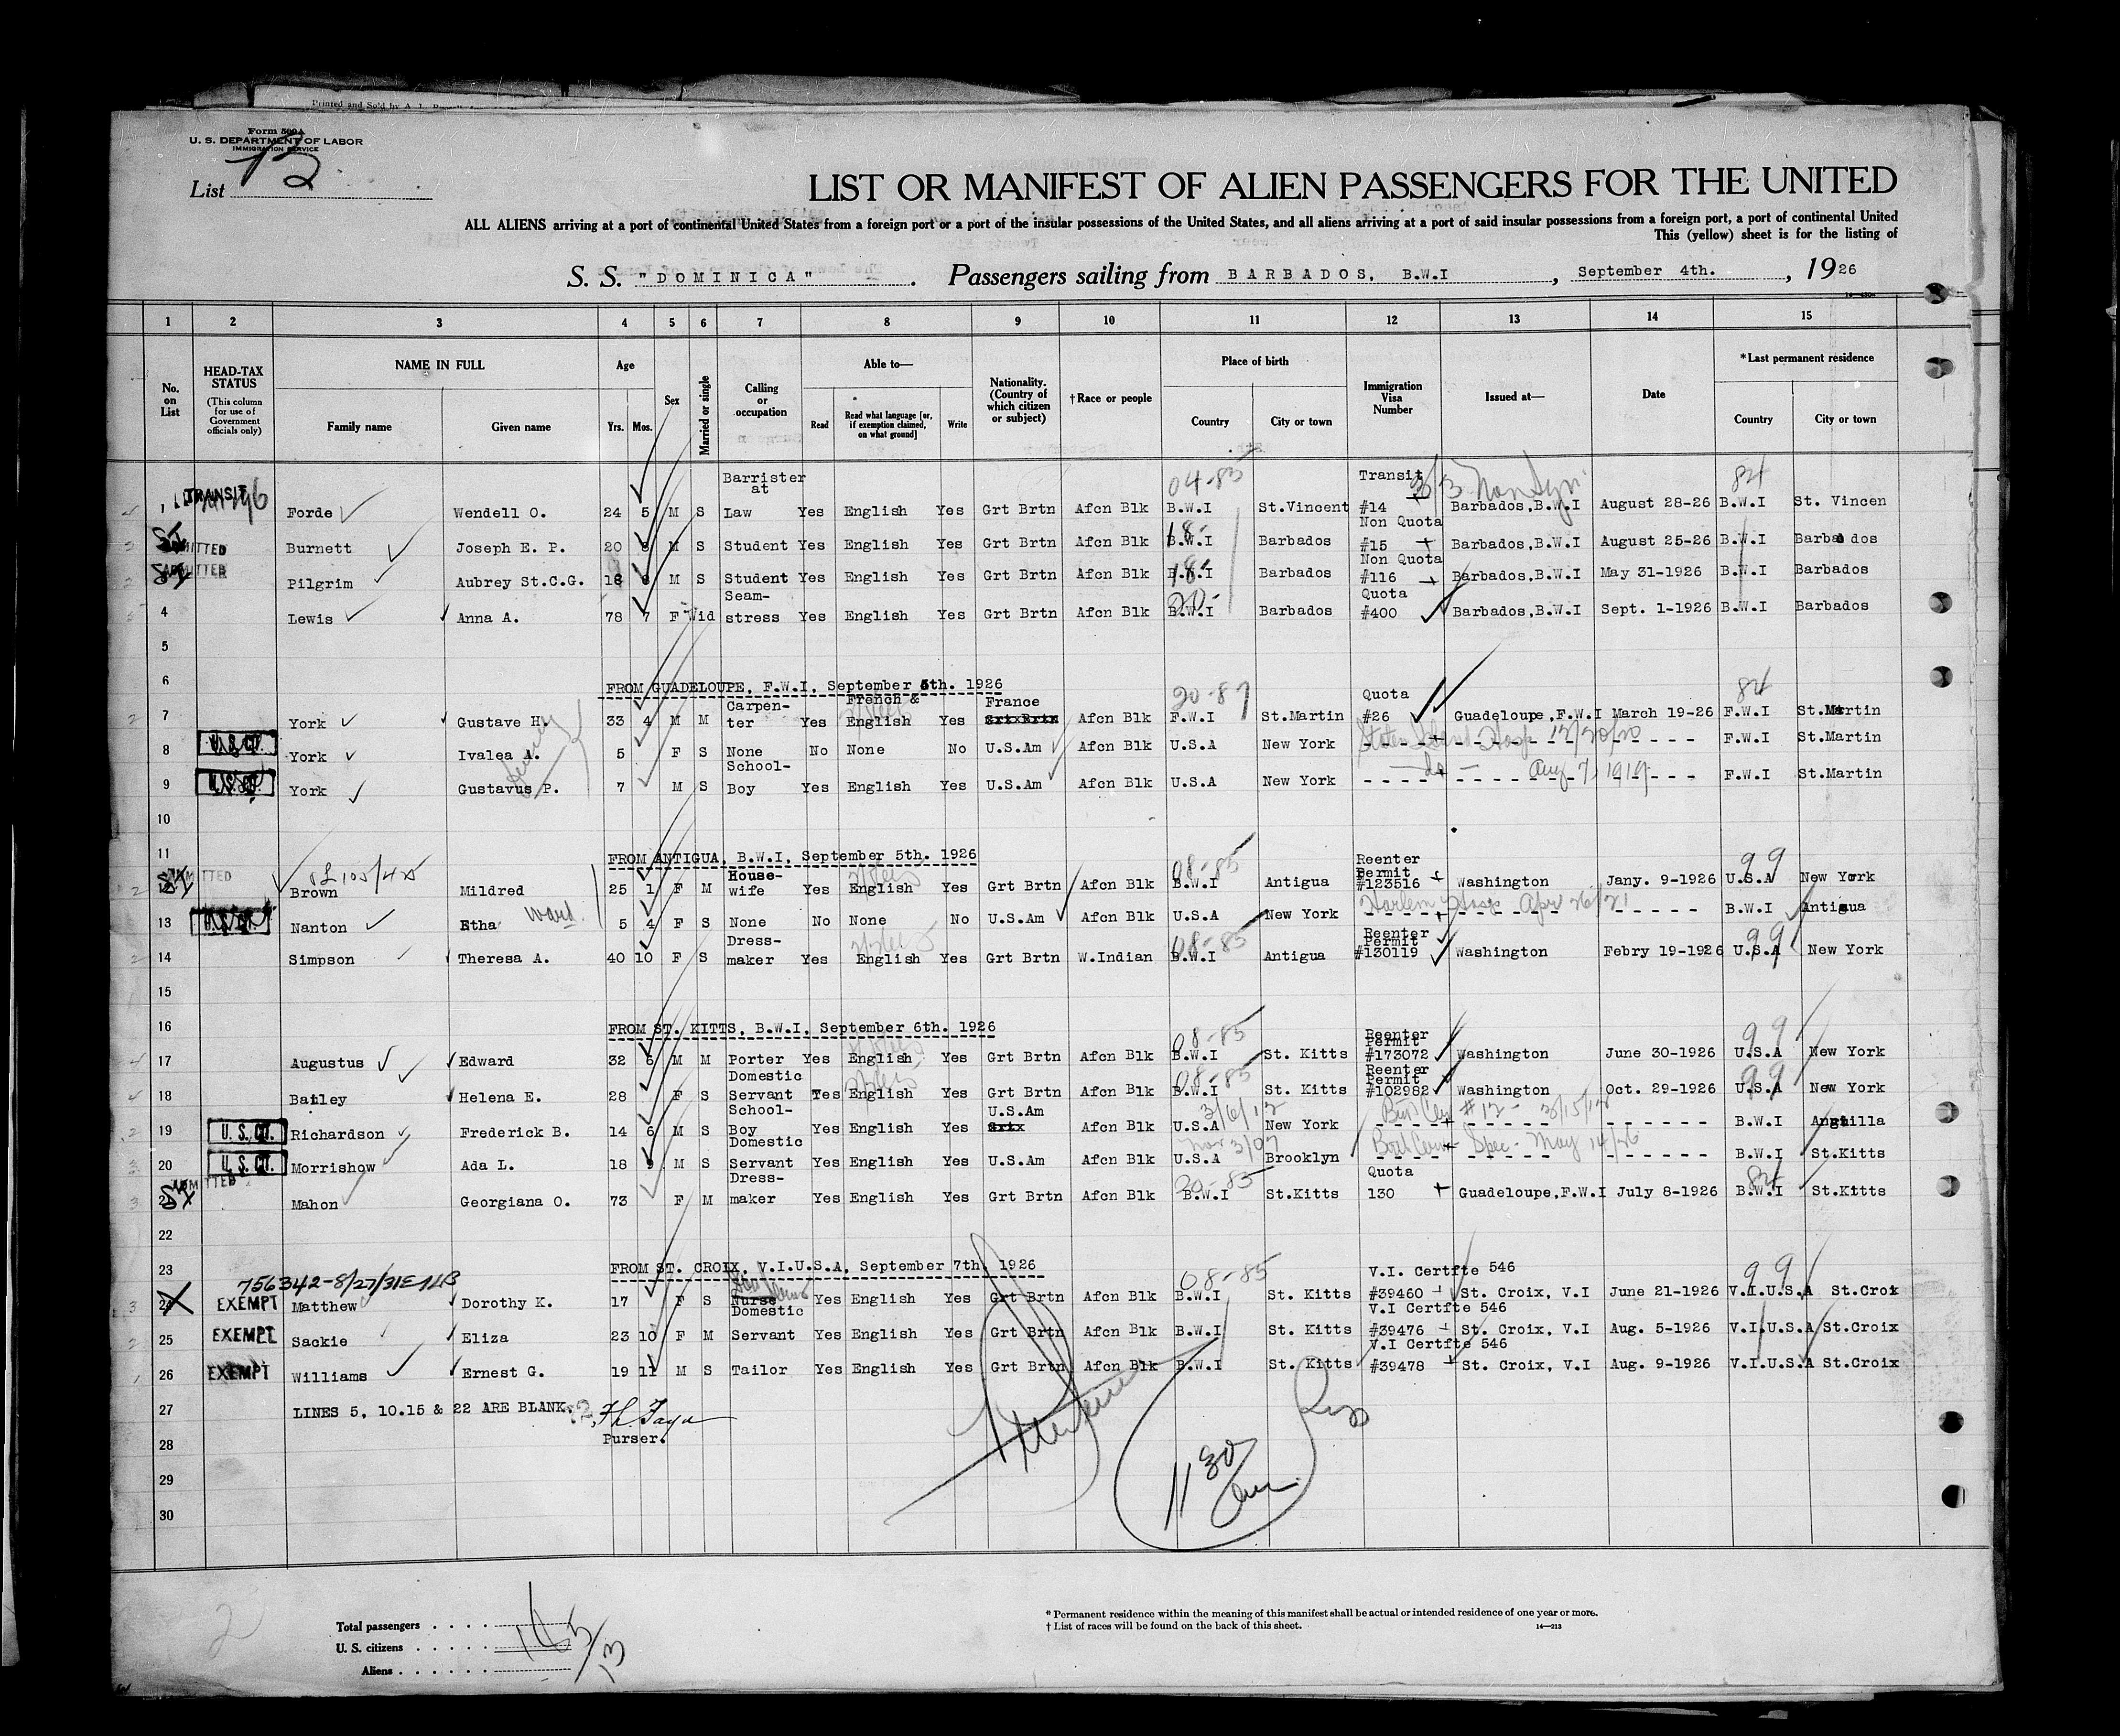 Printed and Sold by A. L.
Form 500A
U. S. DEPARTMENT OF LABOR
IMMIGRATION SERVICE
List 12
LIST OR MANIFEST OF ALIEN PASSENGERS FOR THE UNITED
ALL ALIENS arriving at a port of continental United States from a foreign port or a port of the insular possessions of the United States, and all aliens arriving at a port of said insular possessions from a foreign port, a port of continental United
This (yellow) sheet is for the listing of
S. S. "DOMINICA". Passengers sailing from BARBADOS, B.W.I , September 4th. , 1926
1 2 3 4 5 6 7 8 9 10 11 12 13 14 15
No. on List
HEAD-TAX STATUS (This column for use of Government officials only)
NAME IN FULL
Family name Given name
Age
Yrs. Mos.
Sex
Married or single
Calling or occupation
Able to—
Read
Read what language [or, if exemption claimed, on what ground]
Write
Nationality. (Country of which citizen or subject)
†Race or people
Place of birth
Country City or town
Immigration Visa Number
Issued at—
Date
*Last permanent residence
Country City or town
TRANSIT Forde Wendell O. 24 5 M S Barrister at Law Yes English Yes Grt Brtn Afcn Blk 04-83 B.W.I St.Vincent Transit #14 Barbados,B.W.I August 28-26 84 B.W.I St. Vincen
ADMITTED Burnett Joseph E. P. 20 M S Student Yes English Yes Grt Brtn Afcn Blk B.W.I Barbados Non Quota #15 Barbados,B.W.I August 25-26 B.W.I Barbados
ADMITTED Pilgrim Aubrey St.C.G. 18 M S Student Yes English Yes Grt Brtn Afcn Blk B.W.I Barbados Non Quota #116 Barbados,B.W.I May 31-1926 B.W.I Barbados
4 Lewis Anna A. 78 7 F Wid Seam-stress Yes English Yes Grt Brtn Afcn Blk B.W.I Barbados Quota #400 Barbados,B.W.I Sept. 1-1926 B.W.I Barbados
5
6 FROM GUADELOUPE, F.W.I, September 5th. 1926
7 York Gustave H. 33 4 M M Carpen-ter Yes French & English Yes France Afcn Blk 20-87 F.W.I St.Martin Quota #26 Guadeloupe,F.W.I March 19-26 84 F.W.I St.Martin
8 U.S.CIT. York Ivalea A. 5 F S None No None No U.S.Am Afcn Blk U.S.A New York F.W.I St.Martin
9 U.S.CIT. York Gustavus P. 7 M S School-Boy Yes English Yes U.S.Am Afcn Blk U.S.A New York do Aug 7, 1919 F.W.I St.Martin
10
11 FROM ANTIGUA, B.W.I, September 5th. 1926
ADMITTED Brown Mildred 25 1 F M House-wife Yes English Yes Grt Brtn Afcn Blk 08-85 B.W.I Antigua Reenter Permit #123516 Washington Jany. 9-1926 99 U.S.A New York
13 U.S.CIT. Nanton Etha ward 5 4 F S None No None No U.S.Am Afcn Blk U.S.A New York Harlem Hosp Apr 26/21 B.W.I Antigua
14 Simpson Theresa A. 40 10 F S Dress-maker Yes English Yes Grt Brtn W.Indian 08-85 B.W.I Antigua Reenter Permit #130119 Washington Febry 19-1926 99 U.S.A New York
15
16 FROM ST. KITTS, B.W.I, September 6th. 1926
17 Augustus Edward 32 6 M M Porter Yes English Yes Grt Brtn Afcn Blk 08-85 B.W.I St. Kitts Reenter Permit #173072 Washington June 30-1926 99 U.S.A New York
18 Bailey Helena E. 28 F S Domestic Servant Yes English Yes Grt Brtn Afcn Blk 08-85 B.W.I St. Kitts Reenter Permit #102982 Washington Oct. 29-1926 99 U.S.A New York
19 U.S.CIT. Richardson Frederick B. 14 6 M S School-Boy Yes English Yes U.S.Am Afcn Blk 3/6/12 U.S.A New York B.W.I Anguilla
20 U.S.CIT. Morrishow Ada L. 18 9 M S Domestic Servant Yes English Yes U.S.Am Afcn Blk U.S.A Brooklyn May 14/26 B.W.I St.Kitts
ADMITTED 21 Mahon Georgiana O. 73 F M Dress-maker Yes English Yes Grt Brtn Afcn Blk 20-85 B.W.I St.Kitts Quota 130 Guadeloupe,F.W.I July 8-1926 84 B.W.I St.Kitts
22
23 FROM ST. CROIX, V.I.U.S.A, September 7th. 1926
756342-8/27/31
24 EXEMPT Matthew Dorothy K. 17 F S Nurse Yes English Yes Grt Brtn Afcn Blk 08-85 B.W.I St. Kitts V.I. Certfte 546 #39460 St. Croix, V.I June 21-1926 99 V.I.U.S.A St.Croix
25 EXEMPT Sackie Eliza 23 10 F M Domestic Servant Yes English Yes Grt Brtn Afcn Blk B.W.I St. Kitts V.I Certfte 546 #39476 St. Croix, V.I Aug. 5-1926 V.I.U.S.A St.Croix
26 EXEMPT Williams Ernest G. 19 11 M S Tailor Yes English Yes Grt Brtn Afcn Blk B.W.I St. Kitts V.I Certfte 546 #39478 St. Croix, V.I Aug. 9-1926 V.I.U.S.A St.Croix
27 LINES 5, 10.15 & 22 ARE BLANK.
Purser.
28
29
30
1130 am
Total passengers
U. S. citizens
Aliens
* Permanent residence within the meaning of this manifest shall be actual or intended residence of one year or more.
† List of races will be found on the back of this sheet.
14—213